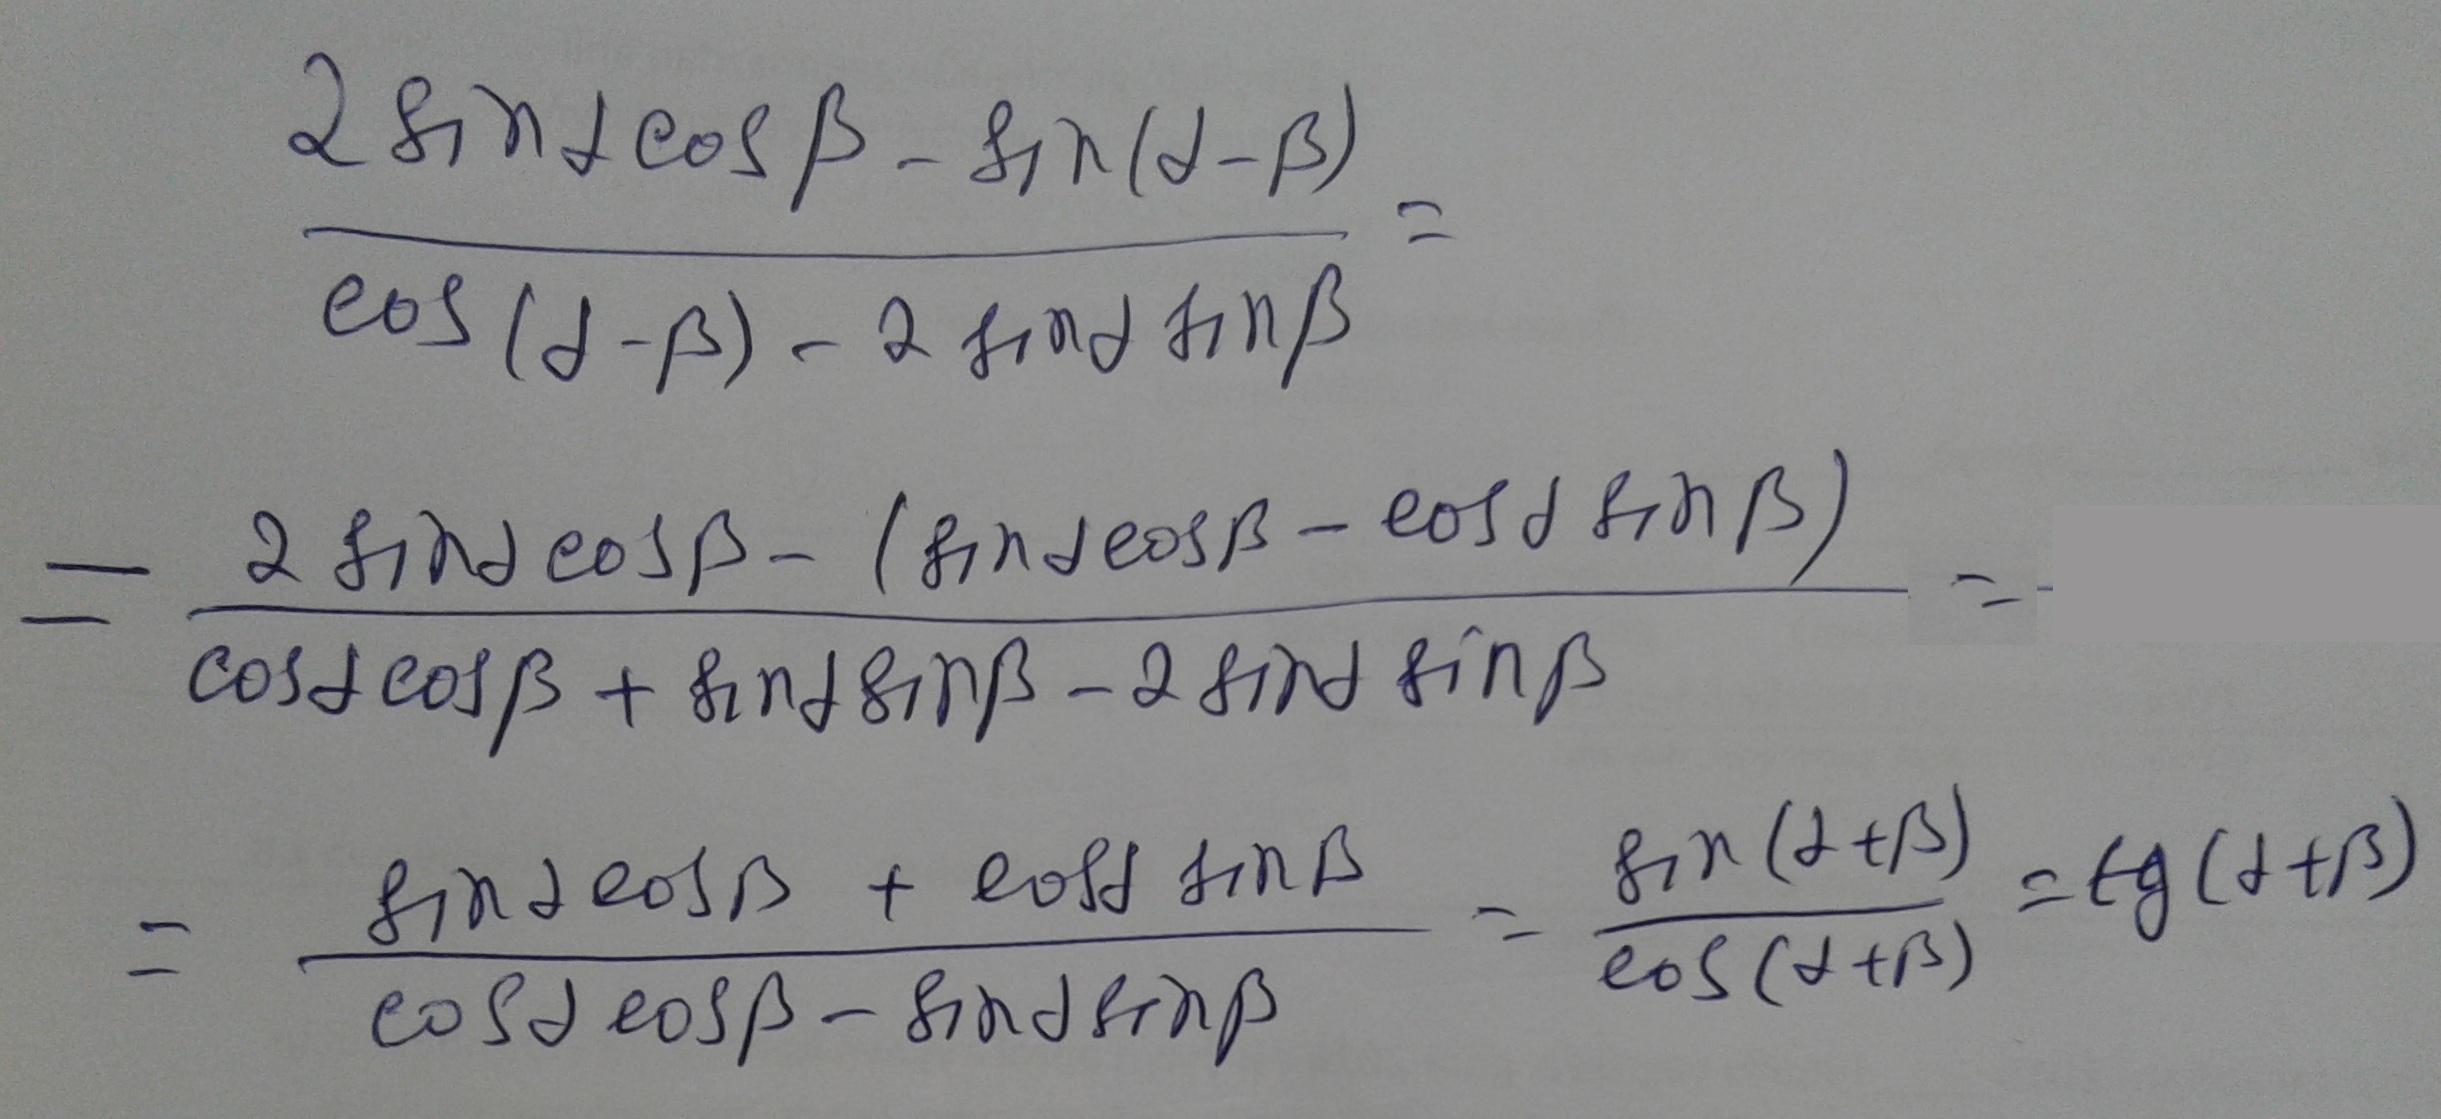 2 sinα cosβ - sin(α-β) =
cos(α-β) - 2 sinα sinβ
= 2 sinα cosβ - (sinα cosβ - cosα sinβ) =
cosα cosβ + sinα sinβ - 2 sinα sinβ
= sinα cosβ + cosα sinβ = sin(α+β) = tg(α+β)
cosα cosβ - sinα sinβ cos(α+β)